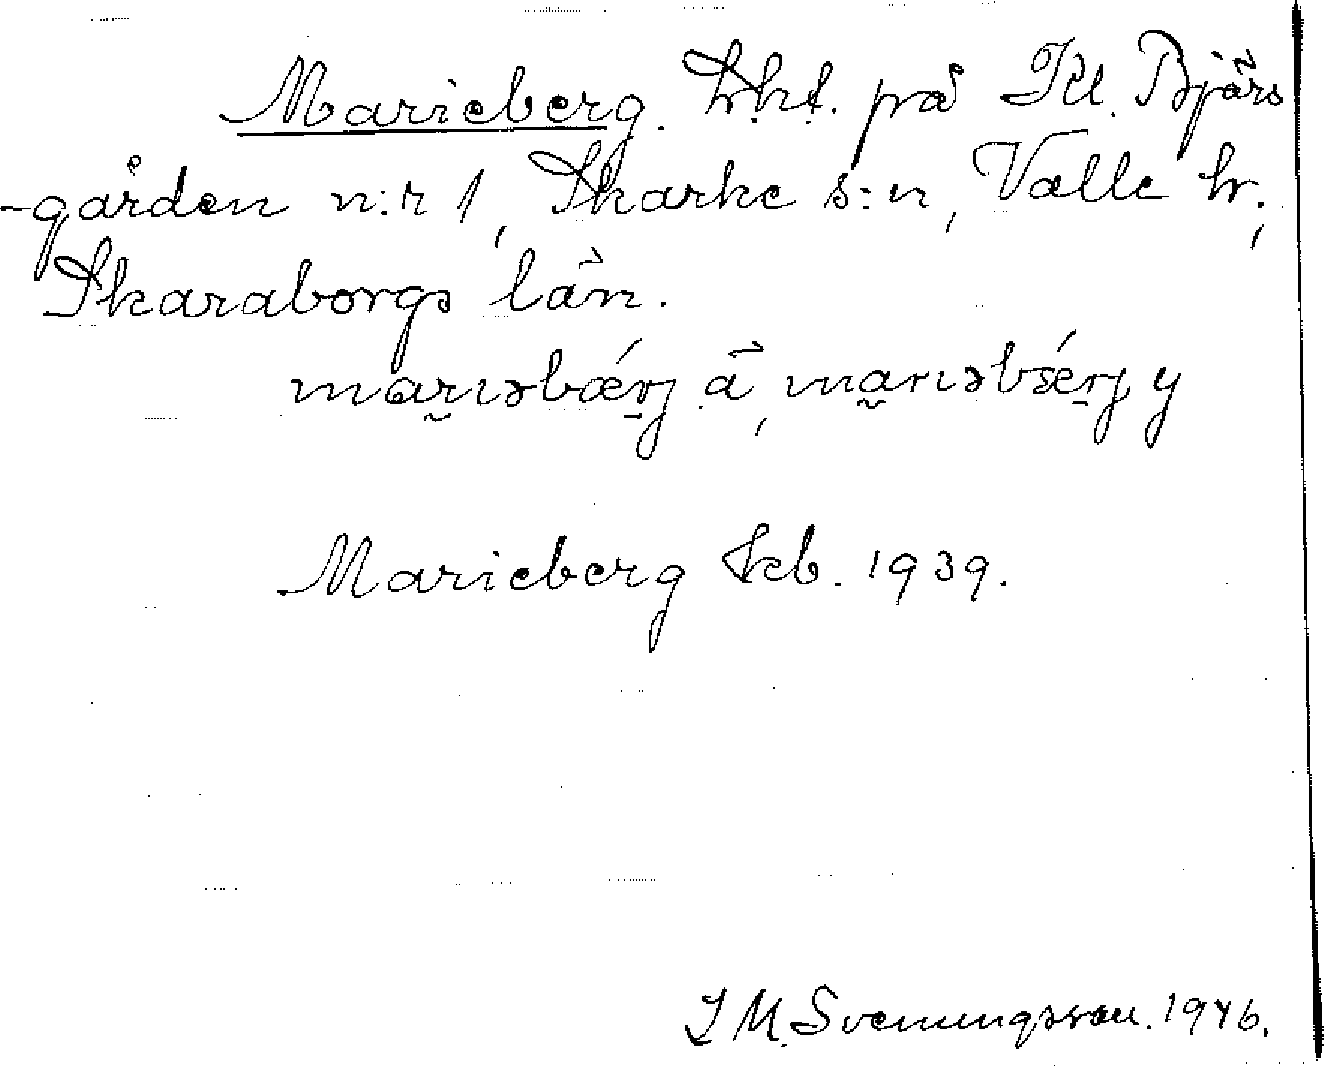 Marieberg. Lht. på Kl. Bjärs
-gården n:r 1, Skarke s:n, Valle hr.,
Skaraborgs län.
marıəbærj ä, marıəbsérj y
Marieberg kb. 1939.
J M. Svenungsson. 1946.